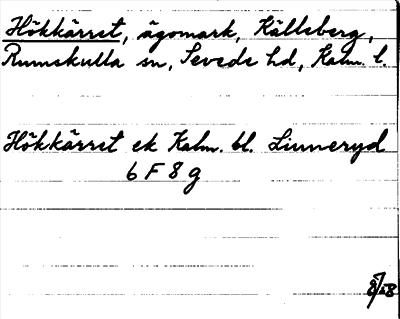 Hökkärret, ägomark, Källeberg,
Rumskulla sn, Sevede hd, Kalm. l.
Hökkärret ek Kalm. bl. Linneryd
6 F 8 g